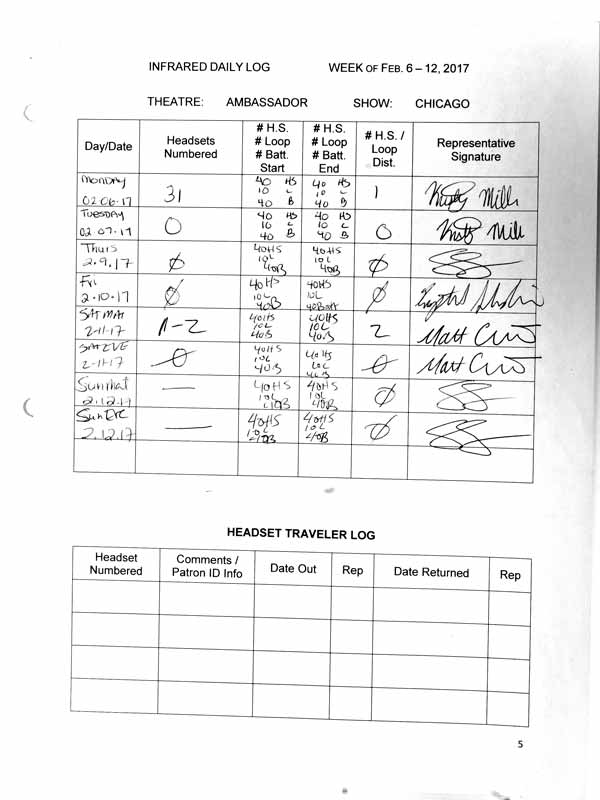 INFRARED DAILY LOG WEEK OF FEB. 6 – 12, 2017
THEATRE: AMBASSADOR SHOW: CHICAGO
Day/Date Headsets Numbered # H.S. # Loop # Batt. Start # H.S. # Loop # Batt. End # H.S. / Loop Dist. Representative Signature
MONDAY 02.06.17 31 40 HS 10 L 40 B 40 HS 10 L 40 B 1 Kristy Mills
TUESDAY 02.07.17 0 40 HS 10 L 40 B 40 HS 10 L 40 B 0 Kristy Mills
Thurs 2.9.17 Ø 40HS 10L 40B 40HS 10L 40B Ø
Fri 2.10.17 Ø 40HS 10L 40B 40HS 10L 40Batt Ø
SAT MAT 2-11-17 1-2 40HS 10L 40B 40HS 10L 40B 2 Matt
SAT EVE 2-11-17 0 40HS 10L 40B 40HS 10L 40B 0 Matt
Sun mat 2.12.17 — 40HS 10L 40B 40HS 10L 40B Ø
Sun Eve 2.12.17 — 40HS 10L 40B 40HS 10L 40B Ø
HEADSET TRAVELER LOG
Headset Numbered Comments / Patron ID Info Date Out Rep Date Returned Rep
5